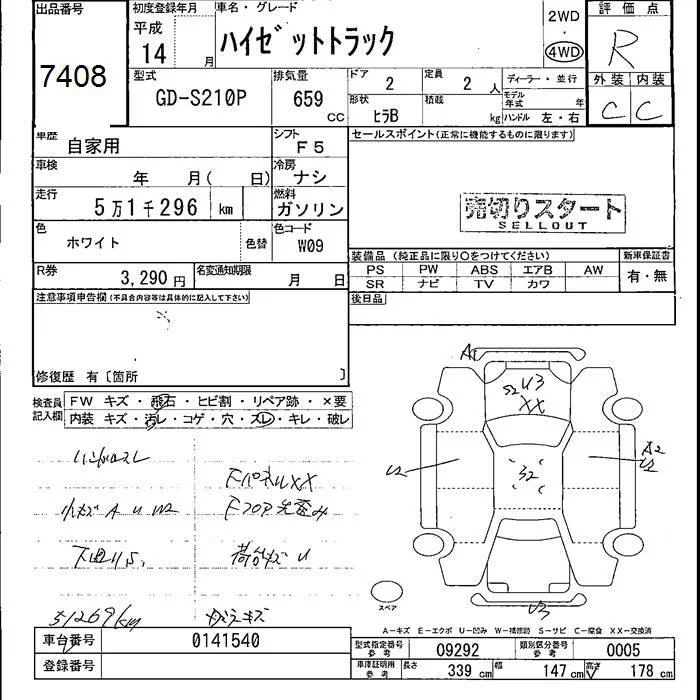 出品番号 初度登録年月 車名・グレード 2WD 評価点
平成 ハイゼットトラック R
14 月 4WD
7408 型式 排気量 ドア 2 定員 2 人 ディーラー・並行 外装 内装
GD-S210P 659 CC 形状 ヒラB 積載 kg モデル年式 年 C C
ハンドル 左・右
車歴 自家用 シフト F5 セールスポイント(正常に機能するものに限ります)
車検 年 月( 日) 冷房 ナシ
走行 5万1千296 km 燃料 ガソリン 売切りスタート
SELLOUT
色 ホワイト 色替 色コード W09
装備品 (純正品に限り○をつけてください) 新車保証書
R券 3,290 円 名変通知期限 月 日 PS PW ABS エアB AW 有・無
SR ナビ TV カワ
注意事項申告欄(不具合内容等は具体的に記入して下さい) 後日品
修復歴 有〔箇所 〕
検査員記入欄 FW キズ・飛石・ヒビ割・リペア跡・×要
内装 キズ・汚レ・コゲ・穴・スレ・キレ・破レ
A1
S2 U3
XX
FパネルXX
小キズ A U W2
Fフロア先歪み
U2 S2 A2
U2
下廻りS.
荷台キズ U
スペア
U3
51269km
ガラスキズ
A-キズ E-エクボ U-凹み W-補修跡 S-サビ C-腐食 XX-交換済
車台番号 0141540 型式指定番号 参考 09292 類別区分番号 参考 0005
登録番号 車庫証明用 参考 長さ 339 cm 幅 147 cm 高さ 178 cm